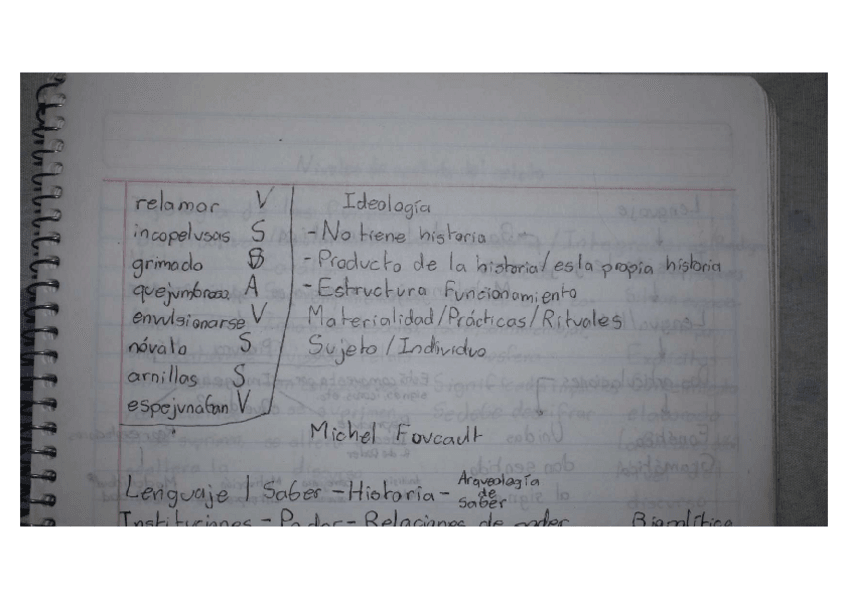 relamar V
incopelusas S
grimado S
quejumbroso A
envulsionarse V
nóvalo S
arnillas S
espejunaban V
Ideología
- No tiene historia
- Producto de la historia/es la propia historia
- Estructura Funcionamiento
Materialidad/Prácticas/Rituales
Sujeto/Individuo
Michel Foucault
Lenguaje | Saber - Historia - Arqueología
de
Saber
Instituciones - Poder - Relaciones de poder Biopolítica